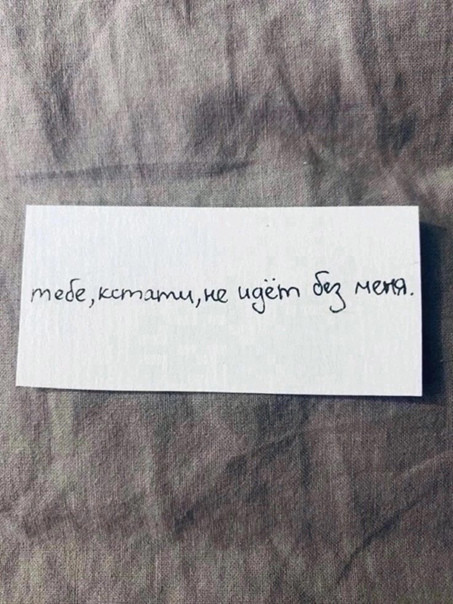 тебе,кстати,не идёт без меня.